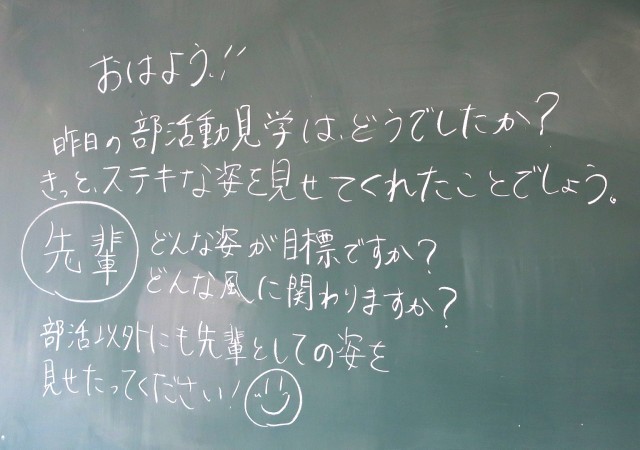 おはよう!!
昨日の部活動見学は、どうでしたか?
きっと、ステキな姿を見せてくれたことでしょう。
先輩 どんな姿が目標ですか?
どんな風に関わりますか?
部活以外にも先輩としての姿を
見せたってください!